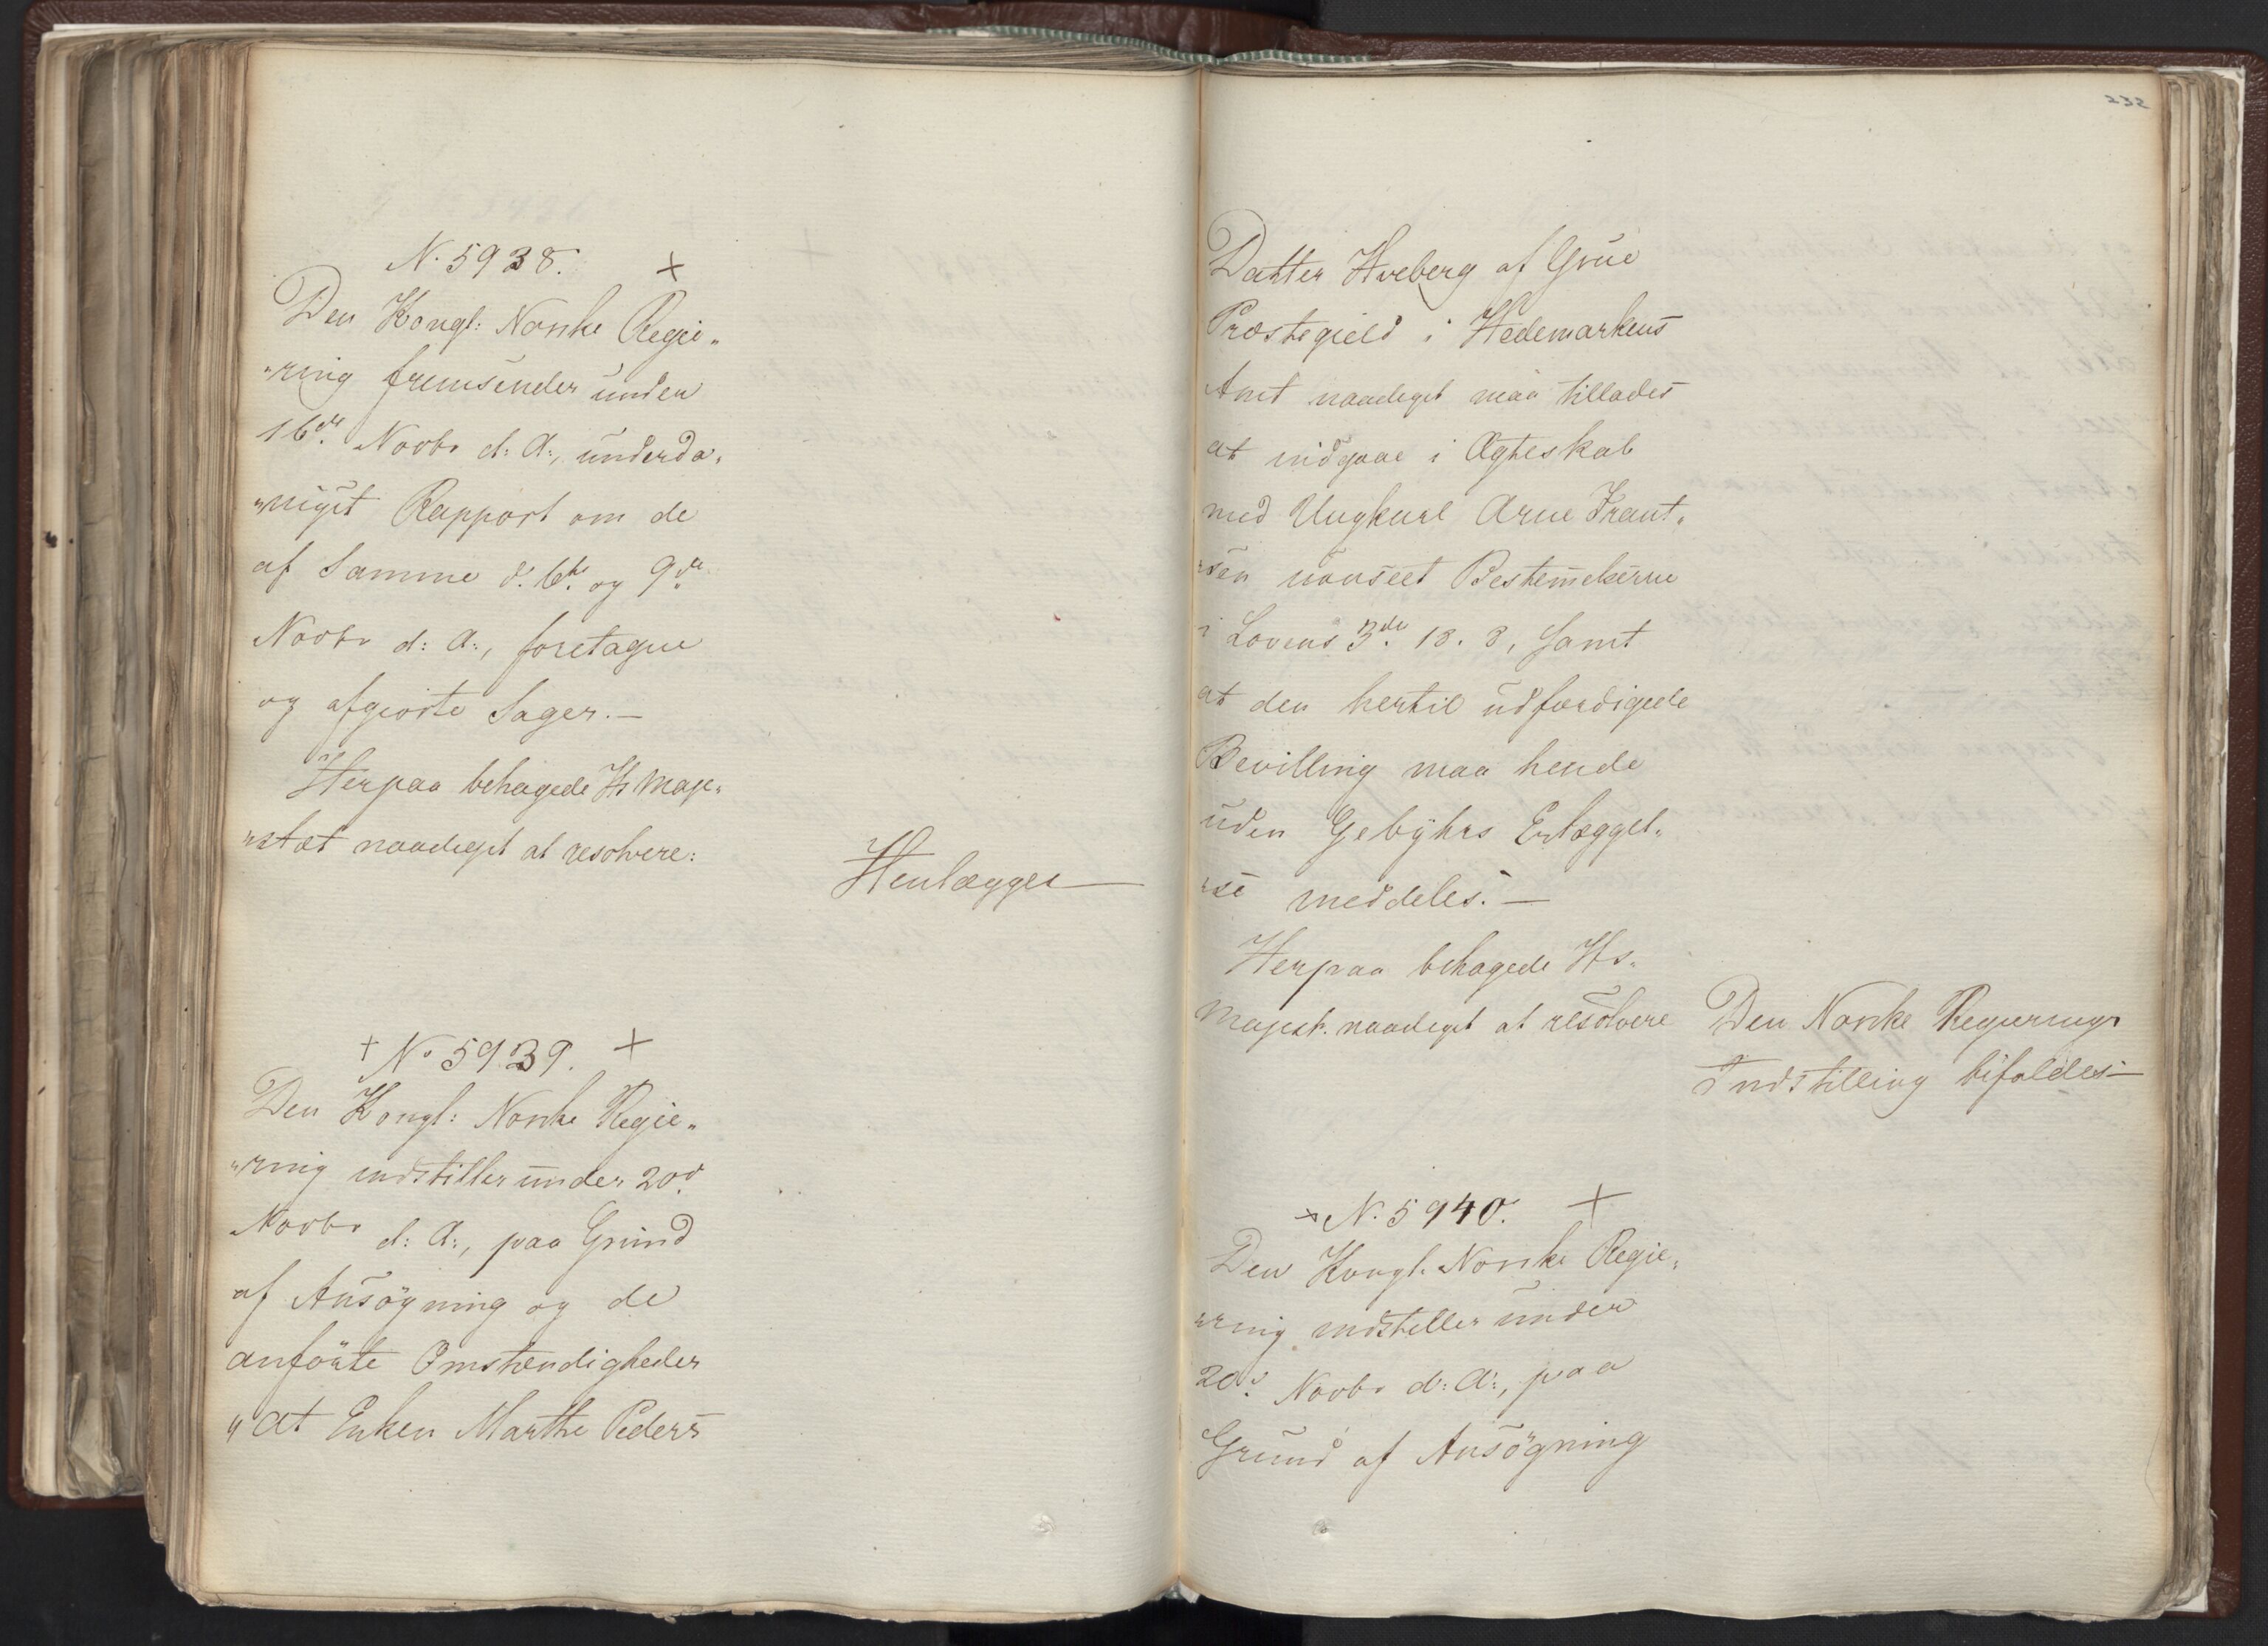 N. 5938.
Den Kongl: Norske Regie„
„ring fremsender under
16de Novbr d: A:, underda„
„nigst Rapport om de
af Samme d. 6te og 9de
Novbr d: A:, foretagne
og afgiorte Sager.—
Herpaa behagede Hs Maje„
„stæt naadigst at resolvere:
Henlægges
No 5939.
Den Kongl: Norske Regie„
„ring indstiller under 20d
Novbr d: A:, paa Grund
af Ansøgning og de
anførte Omstændigheder
„at Enken Marthe Peders
232
Datter Hveberg af Grue
Præstegield i Hedemarkens
Amt naadigst maa tillades
at indgaae i Ægteskab
med Ungkarl Arne Frant„
„sen uanseet Bestemelserne
i Lovens 3de 18. 8, samt
at den hertil udfærdigede
Bevilling maa hende
uden Gebyhrs Erlæggel„
„se meddeles.—
Herpaa behagede Hs.
Majest. naadigst at resolvere
Den Norske Regierings
Indstilling bifaldes—
N. 5940.
Den Kongl. Norske Regie„
„ring indstiller under
20d Novbr d: A:, paa
Grund af Ansøgning